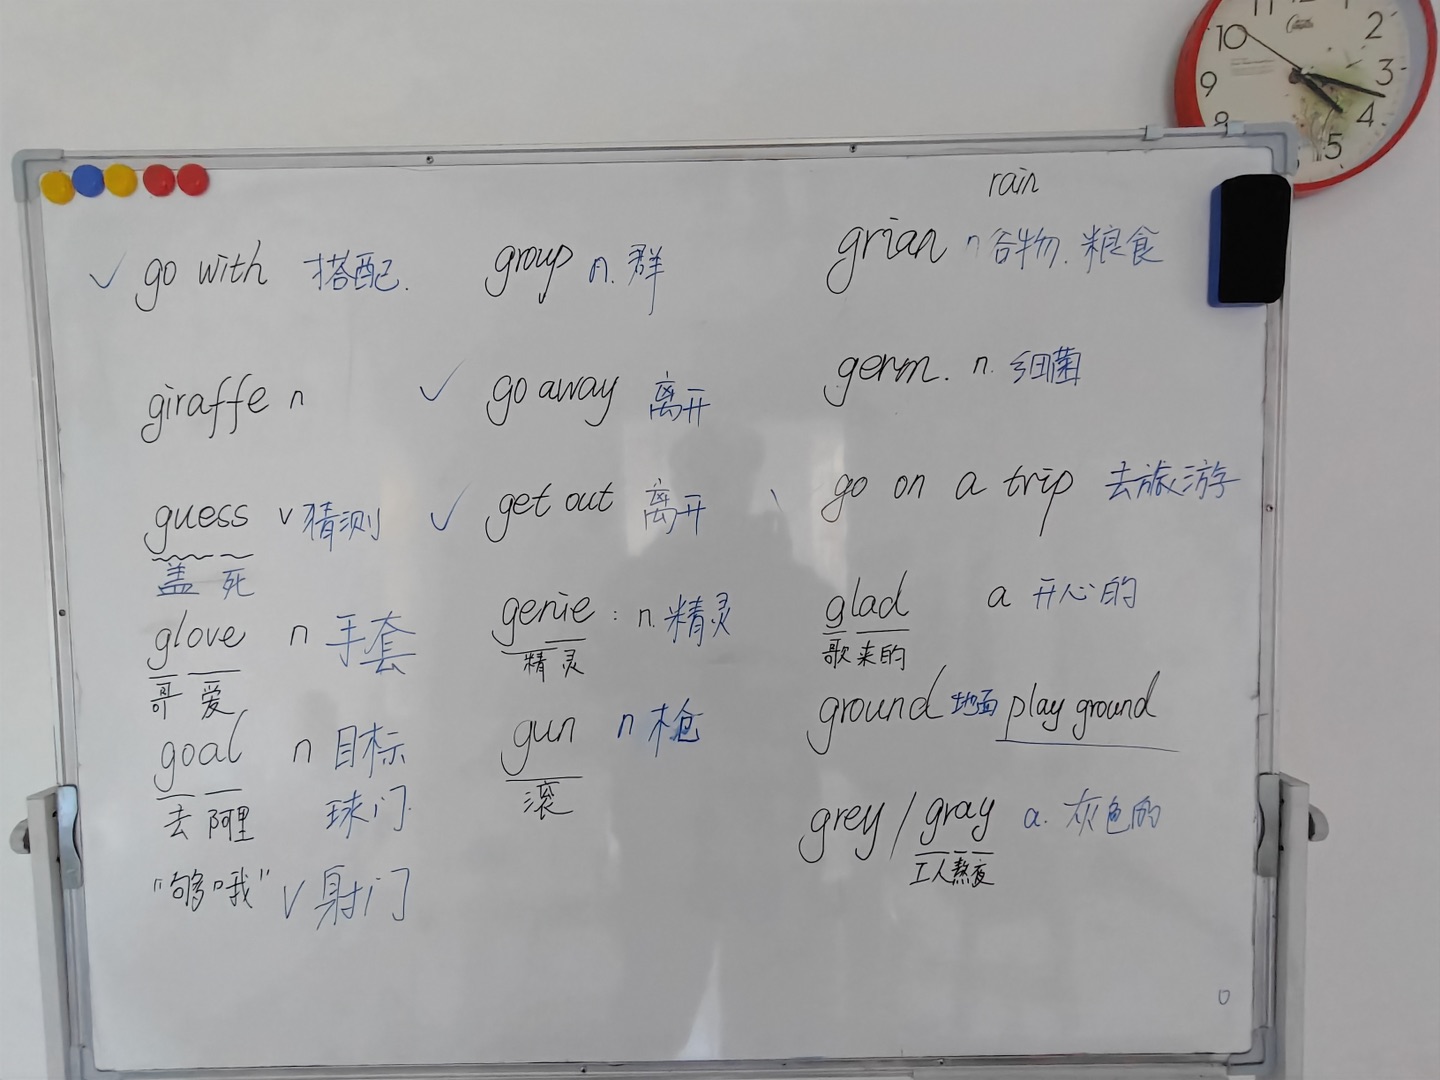 ✓ go with 搭配.
giraffe n
guess v 猜测
盖 死
glove n 手套
哥 爱
goal n 目标
去 阿里 球门
"够哦" v 射门
group n. 群
✓ go away 离开
✓ get out 离开
genie : n. 精灵
精 灵
gun n 枪
滚
rain
grian n 谷物. 粮食
germ. n. 细菌
go on a trip 去旅游
glad a 开心的
歌 来的
ground 地面 play ground
grey / gray a. 灰色的
工人熬夜
11 12 1
10 2
9 3
8 4
5